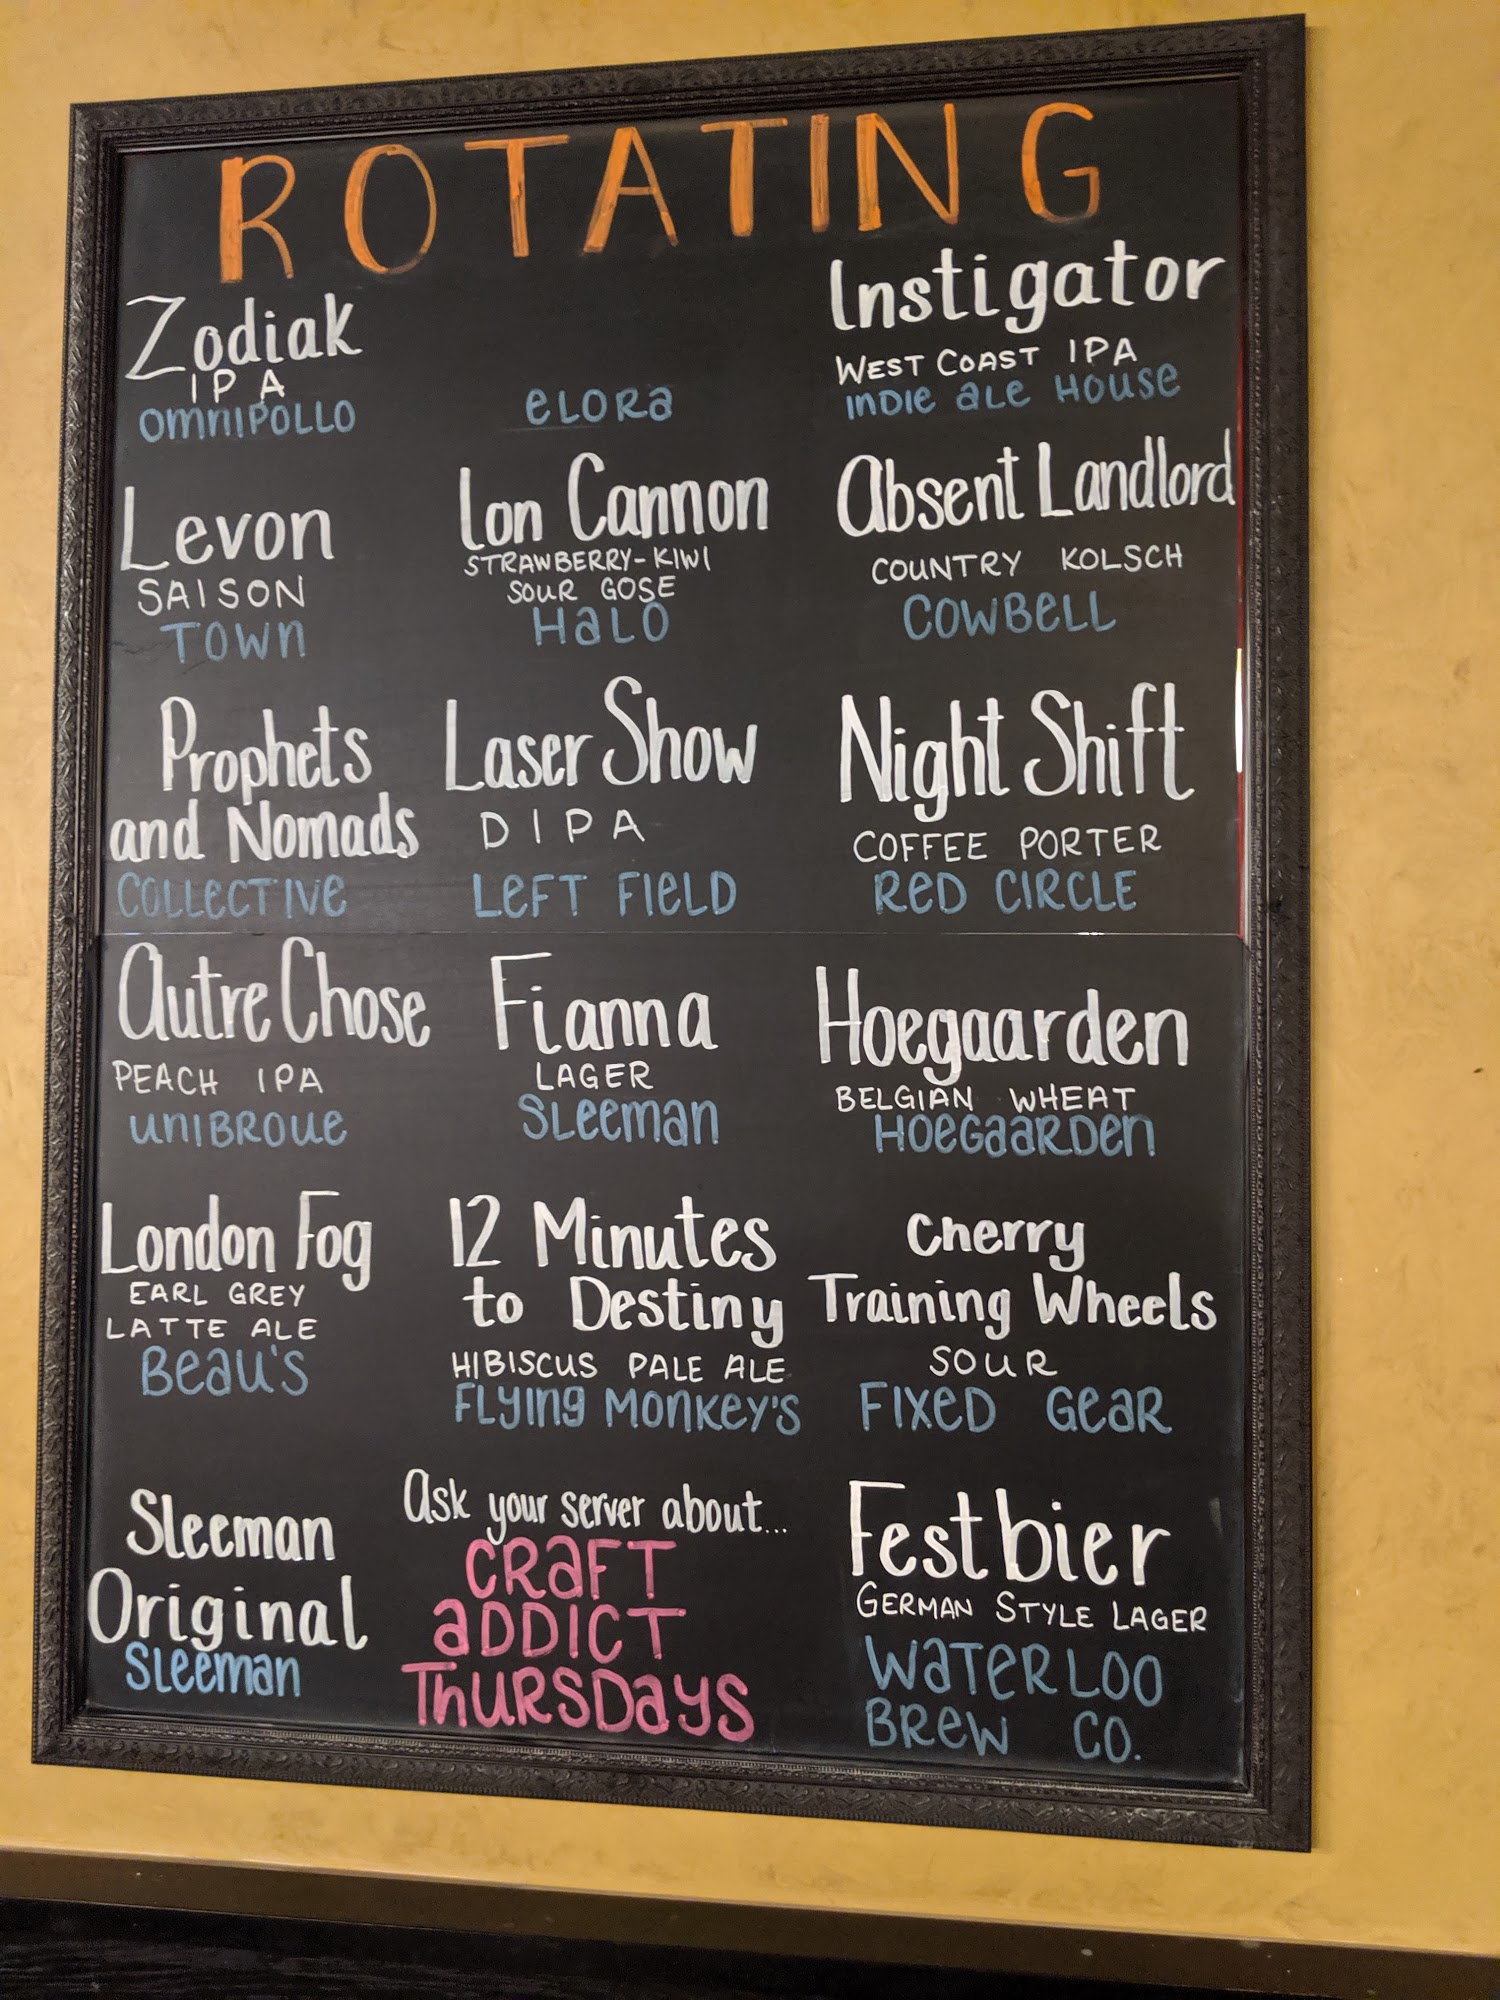 ROTATING
Zodiak
IPA
OMNIPOLLO
ELORA
Instigator
WEST COAST IPA
INDIE ALE HOUSE
Levon
SAISON
TOWN
Lon Cannon
STRAWBERRY-KIWI
SOUR GOSE
HALO
Absent Landlord
COUNTRY KOLSCH
COWBELL
Prophets
and Nomads
COLLECTIVE
Laser Show
DIPA
LEFT FIELD
Night Shift
COFFEE PORTER
RED CIRCLE
Autre Chose
PEACH IPA
UNIBROUE
Fianna
LAGER
SLEEMAN
Hoegaarden
BELGIAN WHEAT
HOEGAARDEN
London Fog
EARL GREY
LATTE ALE
BEAU'S
12 Minutes
to Destiny
HIBISCUS PALE ALE
FLYING MONKEY'S
Cherry
Training Wheels
SOUR
FIXED GEAR
Sleeman
Original
SLEEMAN
Ask your server about...
CRAFT
ADDICT
THURSDAYS
Festbier
GERMAN STYLE LAGER
WATERLOO
BREW CO.